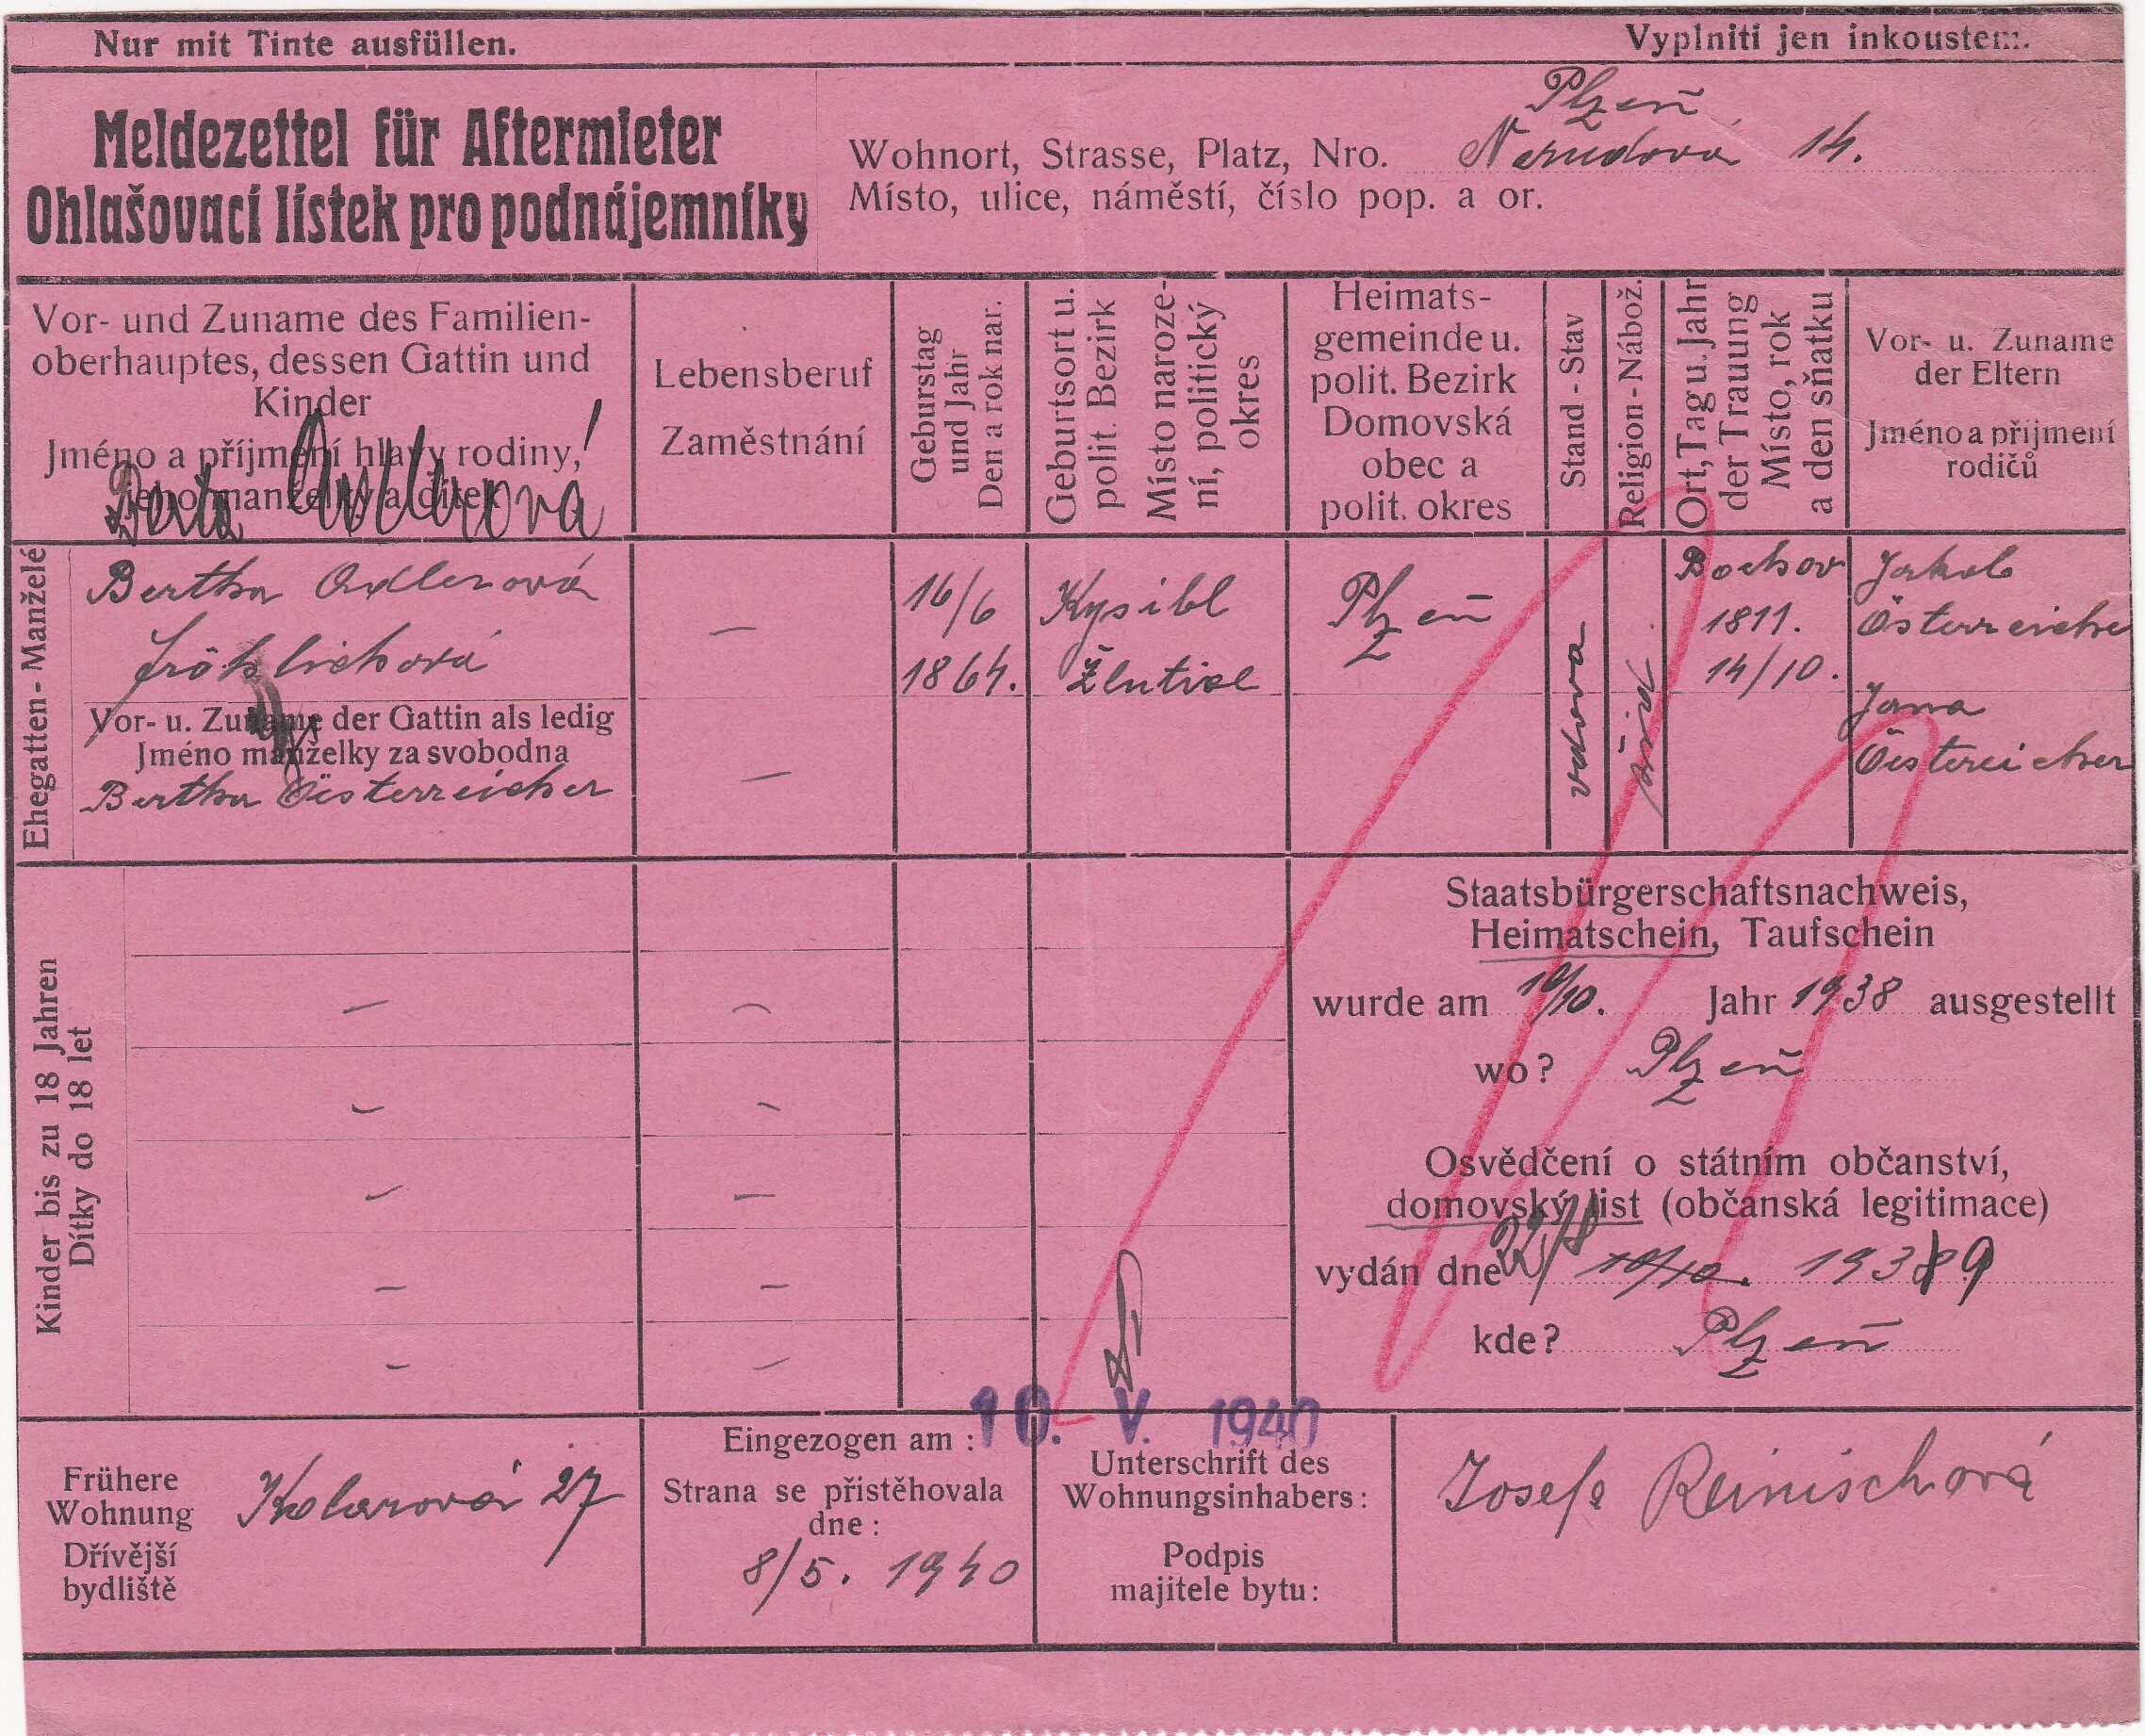 Nur mit Tinte ausfüllen.
Vyplniti jen inkoustem.
Meldezettel für Aftermieter
Ohlašovací lístek pro podnájemníky
Plzeň
Wohnort, Strasse, Platz, Nro. Nerudova 14.
Místo, ulice, náměstí, číslo pop. a or.
Vor- und Zuname des Familien-
oberhauptes, dessen Gattin und
Kinder
Jméno a příjmení hlavy rodiny,
jeho manželky a dítek
Berta
Lebensberuf
Zaměstnání
Geburstag
und Jahr
Den a rok nar.
Geburtsort u.
polit. Bezirk
Místo naroze-
ní, politický
okres
Heimats-
gemeinde u.
polit. Bezirk
Domovská
obec a
polit. okres
Stand - Stav
Religion - Nábož.
Ort, Tag u. Jahr
der Trauung
Místo, rok
a den sňatku
Vor- u. Zuname
der Eltern
Jméno a příjmení
rodičů
Ehegatten - Manželé
Bertha Adlerová
Fröhlichová
Vor- u. Zuname der Gattin als ledig
Jméno manželky za svobodna
Bertha Öisterreicher
—
—
16/6
1864.
Kysibl
Žlutice
Plzeň
vdova
žid
Bochov
1811.
14/10.
Jakob
Österreicher
Jana
Öistereicher
Kinder bis zu 18 Jahren
Dítky do 18 let
Staatsbürgerschaftsnachweis,
Heimatschein, Taufschein
wurde am 10/10. Jahr 1938 ausgestellt
wo? Plzeň
Osvědčení o státním občanství,
domovský list (občanská legitimace)
vydán dne 22/8 10/10. 1939
kde? Plzeň
10. V. 1940
Frühere
Wohnung
Dřívější
bydliště
Kolarová 27
Eingezogen am :
Strana se přistěhovala
dne :
8/5. 1940
Unterschrift des
Wohnungsinhabers :
Podpis
majitele bytu :
Josefa Reinischová